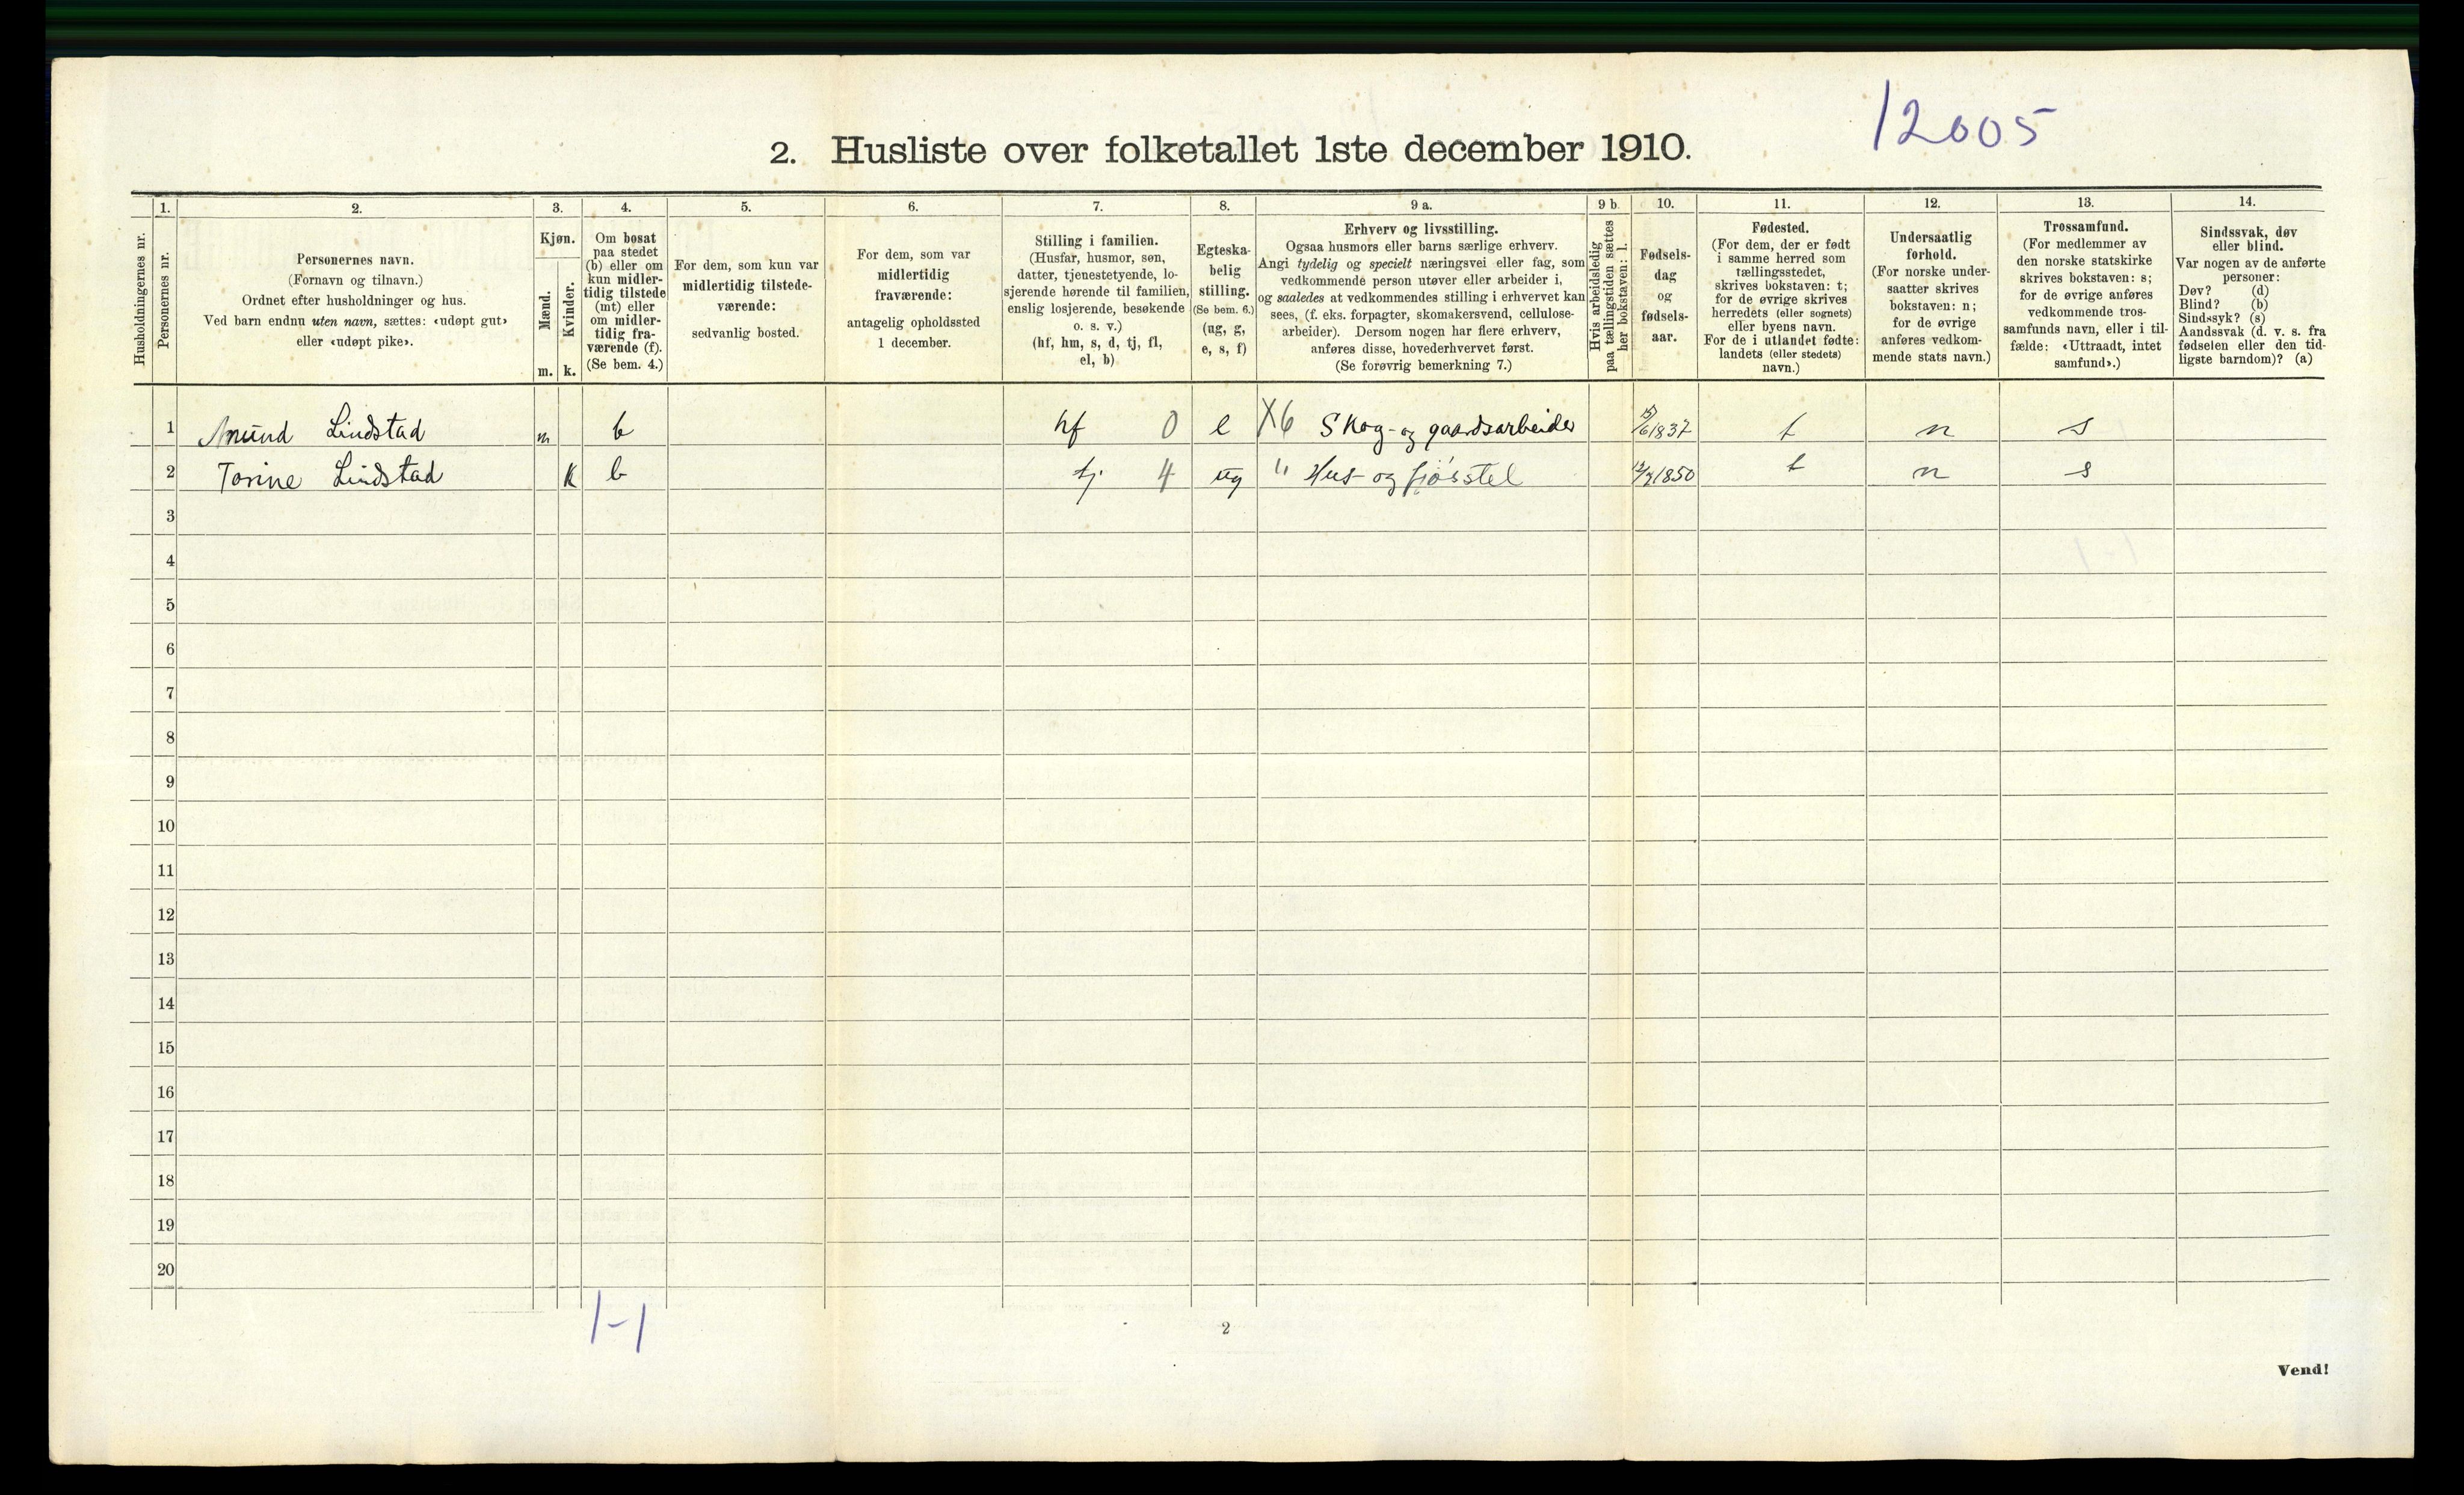 12005
2. Husliste over folketallet 1ste december 1910.
Husholdningernes nr.
1.
Personernes nr.
2.
Personernes navn.
(Fornavn og tilnavn.)
Ordnet efter husholdninger og hus.
Ved barn endnu uten navn, sættes: «udøpt gut»
eller «udøpt pike».
3.
Kjøn.
Mænd.
Kvinder.
m. k.
4.
Om bosat
paa stedet
(b) eller om
kun midler-
tidig tilstede
(mt) eller
om midler-
tidig fra-
værende (f).
(Se bem. 4.)
5.
For dem, som kun var
midlertidig tilstede-
værende:
sedvanlig bosted.
6.
For dem, som var
midlertidig
fraværende:
antagelig opholdssted
1 december.
7.
Stilling i familien.
(Husfar, husmor, søn,
datter, tjenestetyende, lo-
sjerende hørende til familien,
enslig losjerende, besøkende
o. s. v.)
(hf, hm, s, d, tj, fl,
el, b)
8.
Egteska-
belig
stilling.
(Se bem. 6.)
(ug, g,
e, s, f)
9 a.
Erhverv og livsstilling.
Ogsaa husmors eller barns særlige erhverv.
Angi tydelig og specielt næringsvei eller fag, som
vedkommende person utøver eller arbeider i,
og saaledes at vedkommendes stilling i erhvervet kan
sees, (f. eks. forpagter, skomakersvend, cellulose-
arbeider). Dersom nogen har flere erhverv,
anføres disse, hovederhvervet først.
(Se forøvrig bemerkning 7.)
9 b.
Hvis arbeidsledig
paa tællingstiden sættes
her bokstaven: l.
10.
Fødsels-
dag
og
fødsels-
aar.
11.
Fødested.
(For dem, der er født
i samme herred som
tællingsstedet,
skrives bokstaven: t;
for de øvrige skrives
herredets (eller sognets)
eller byens navn.
For de i utlandet fødte:
landets (eller stedets)
navn.)
12.
Undersaatlig
forhold.
(For norske under-
saatter skrives
bokstaven: n;
for de øvrige
anføres vedkom-
mende stats navn.)
13.
Trossamfund.
(For medlemmer av
den norske statskirke
skrives bokstaven: s;
for de øvrige anføres
vedkommende tros-
samfunds navn, eller i til-
fælde: «Uttraadt, intet
samfund».)
14.
Sindssvak, døv
eller blind.
Var nogen av de anførte
personer:
Døv? (d)
Blind? (b)
Sindssyk? (s)
Aandssvak (d. v. s. fra
fødselen eller den tid-
ligste barndom)? (a)
1 Amund Lindstad m b hf 0 e X6 Skog- og gaardsarbeider 15/6 1837 t n s
2 Torine Lindstad k b tj 4 ug " Hus- og fjøsstel 1850 t n s
3
4
5
6
7
8
9
10
11
12
13
14
15
16
17
18
19
20
1-1
2
Vend!